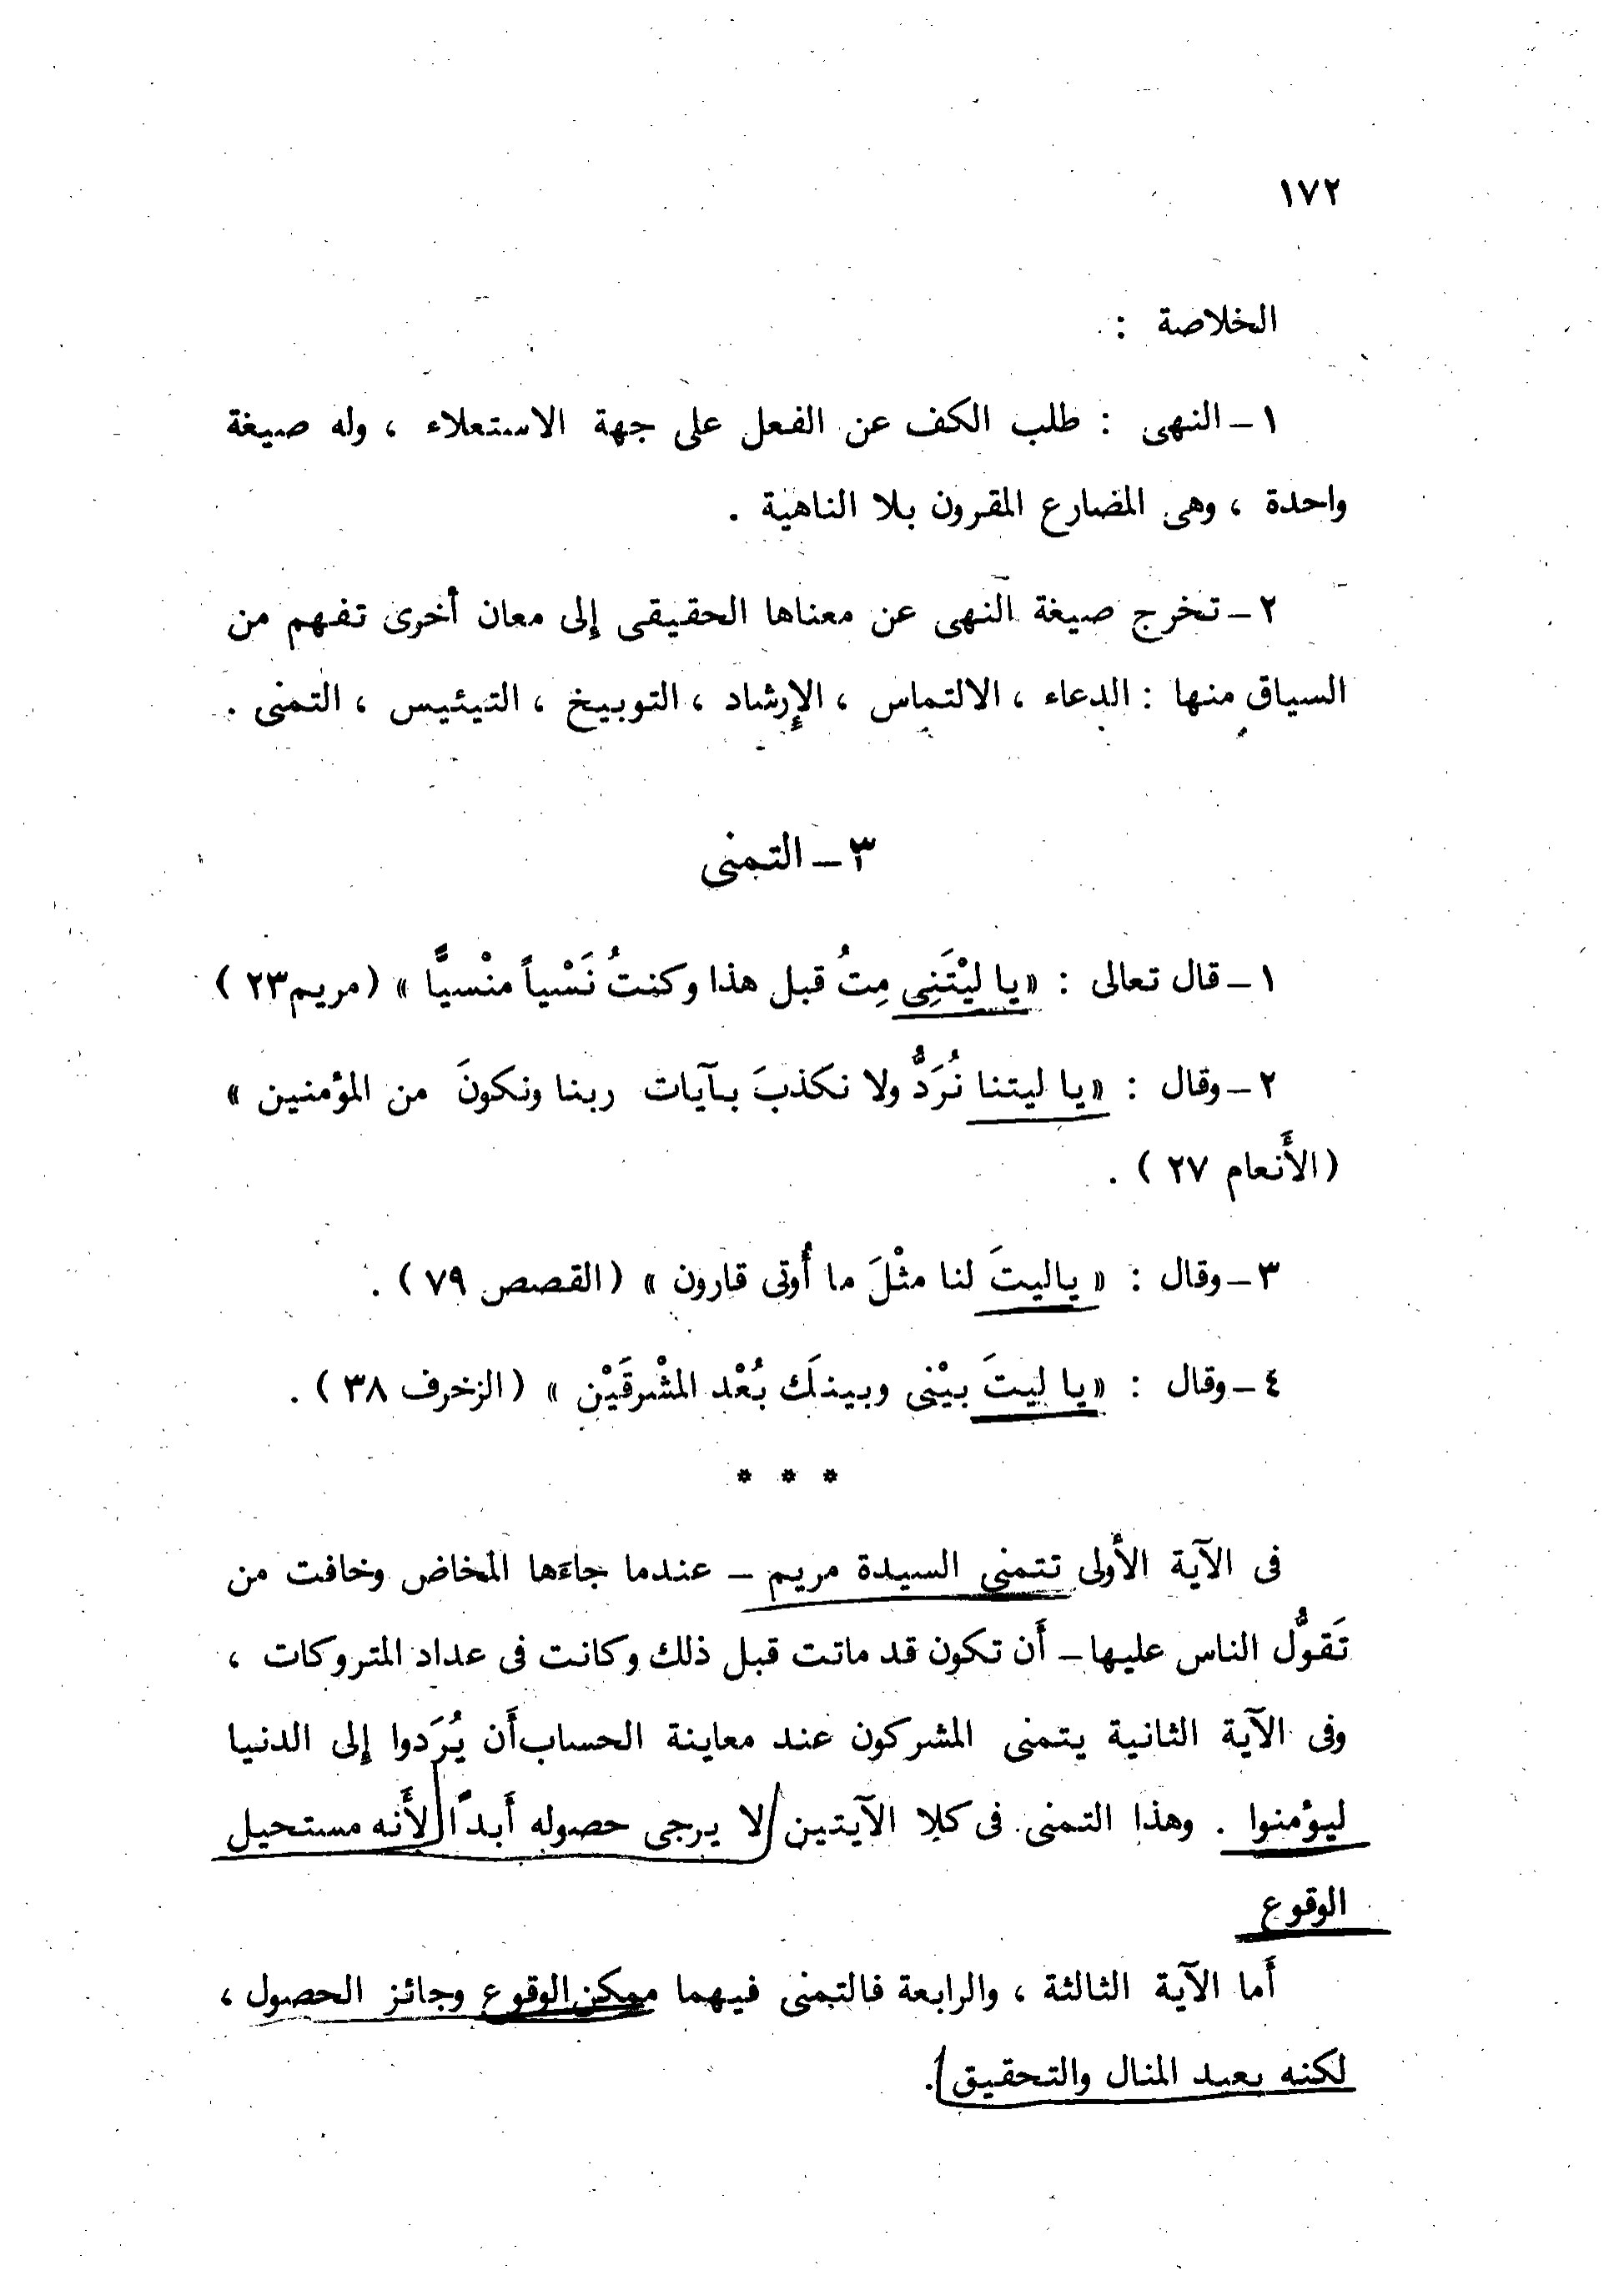 ١٧٢
الخلاصة :
١ – النهى : طلب الكف عن الفعل على جهة الاستعلاء ، وله صيغة
واحدة ، وهى المضارع المقرون بلا الناهية .
٢ – تخرج صيغة النهى عن معناها الحقيقى إلى معان أخرى تفهم من
السياق منها : الدعاء ، الالتماس ، الإرشاد ، التوبيخ ، التيئيس ، التمنى .
٣ – التمنى
١ – قال تعالى : « يا ليْتَنِى مِتُ قبل هذا وكنتُ نَسْياً منْسيًّا » (مريم ٢٣ )
٢ – وقال : « يا ليتنا نُرَدُّ ولا نكذبَ بآيات ربنا ونكونَ من المؤمنين »
(الأَنعام ٢٧ ) .
٣ – وقال : « ياليتَ لنا مثْلَ ما أُوتى قارون » (القصص ٧٩ ) .
٤ – وقال : « يا ليتَ بيْنى وبينكَ بُعْد المشْرقَيْن » (الزخرف ٣٨ ) .
* * *
فى الآية الأولى تتمنى السيدة مريم – عندما جاءَها المخاض وخافت من
تَقوُّل الناس عليها – أَن تكون قد ماتت قبل ذلك وكانت فى عداد المتروكات ،
وفى الآية الثانية يتمنى المشركون عند معاينة الحساب أَن يُرَدوا إلى الدنيا
ليؤمنوا . وهذا التمنى فى كلا الآيتين لا يرجى حصوله أَبداً لأَنه مستحيل
الوقوع
أَما الآية الثالثة ، والرابعة فالتمنى فيهما ممكن الوقوع وجائز الحصول ،
لكنه بعيد المنال والتحقيق .